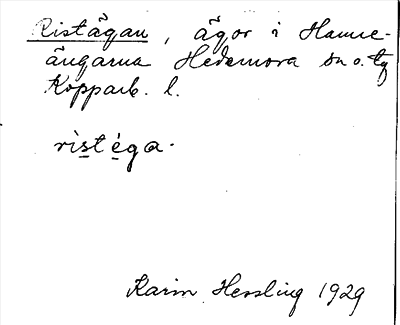 Ristägan, ägor i Hamre-
ängarna Hedemora sn o. tg
Kopparb. l.
ristéga.
Karin Hessling 1929